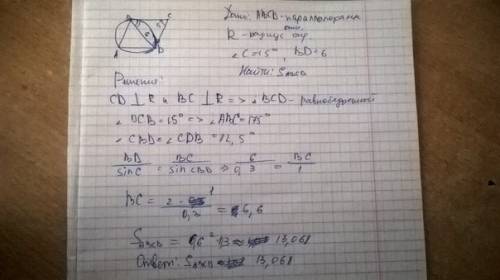 A B C D
Дано: ABCD - параллелограм
R - радиус
∠C = 15°, BD = 6
Найти: S
Решение:
CD ⊥ R и BC ⊥ R => BCD - равнобедренный
∠DCB = 15° => ∠ABC = 175°
∠CBD = ∠CDB = 12,5°
BD/sin C = BC/sin CBD => 6/0,3 = BC/1
BC = 2 · 1/0,3 = 6,6
= 13,068
Ответ: 13,068